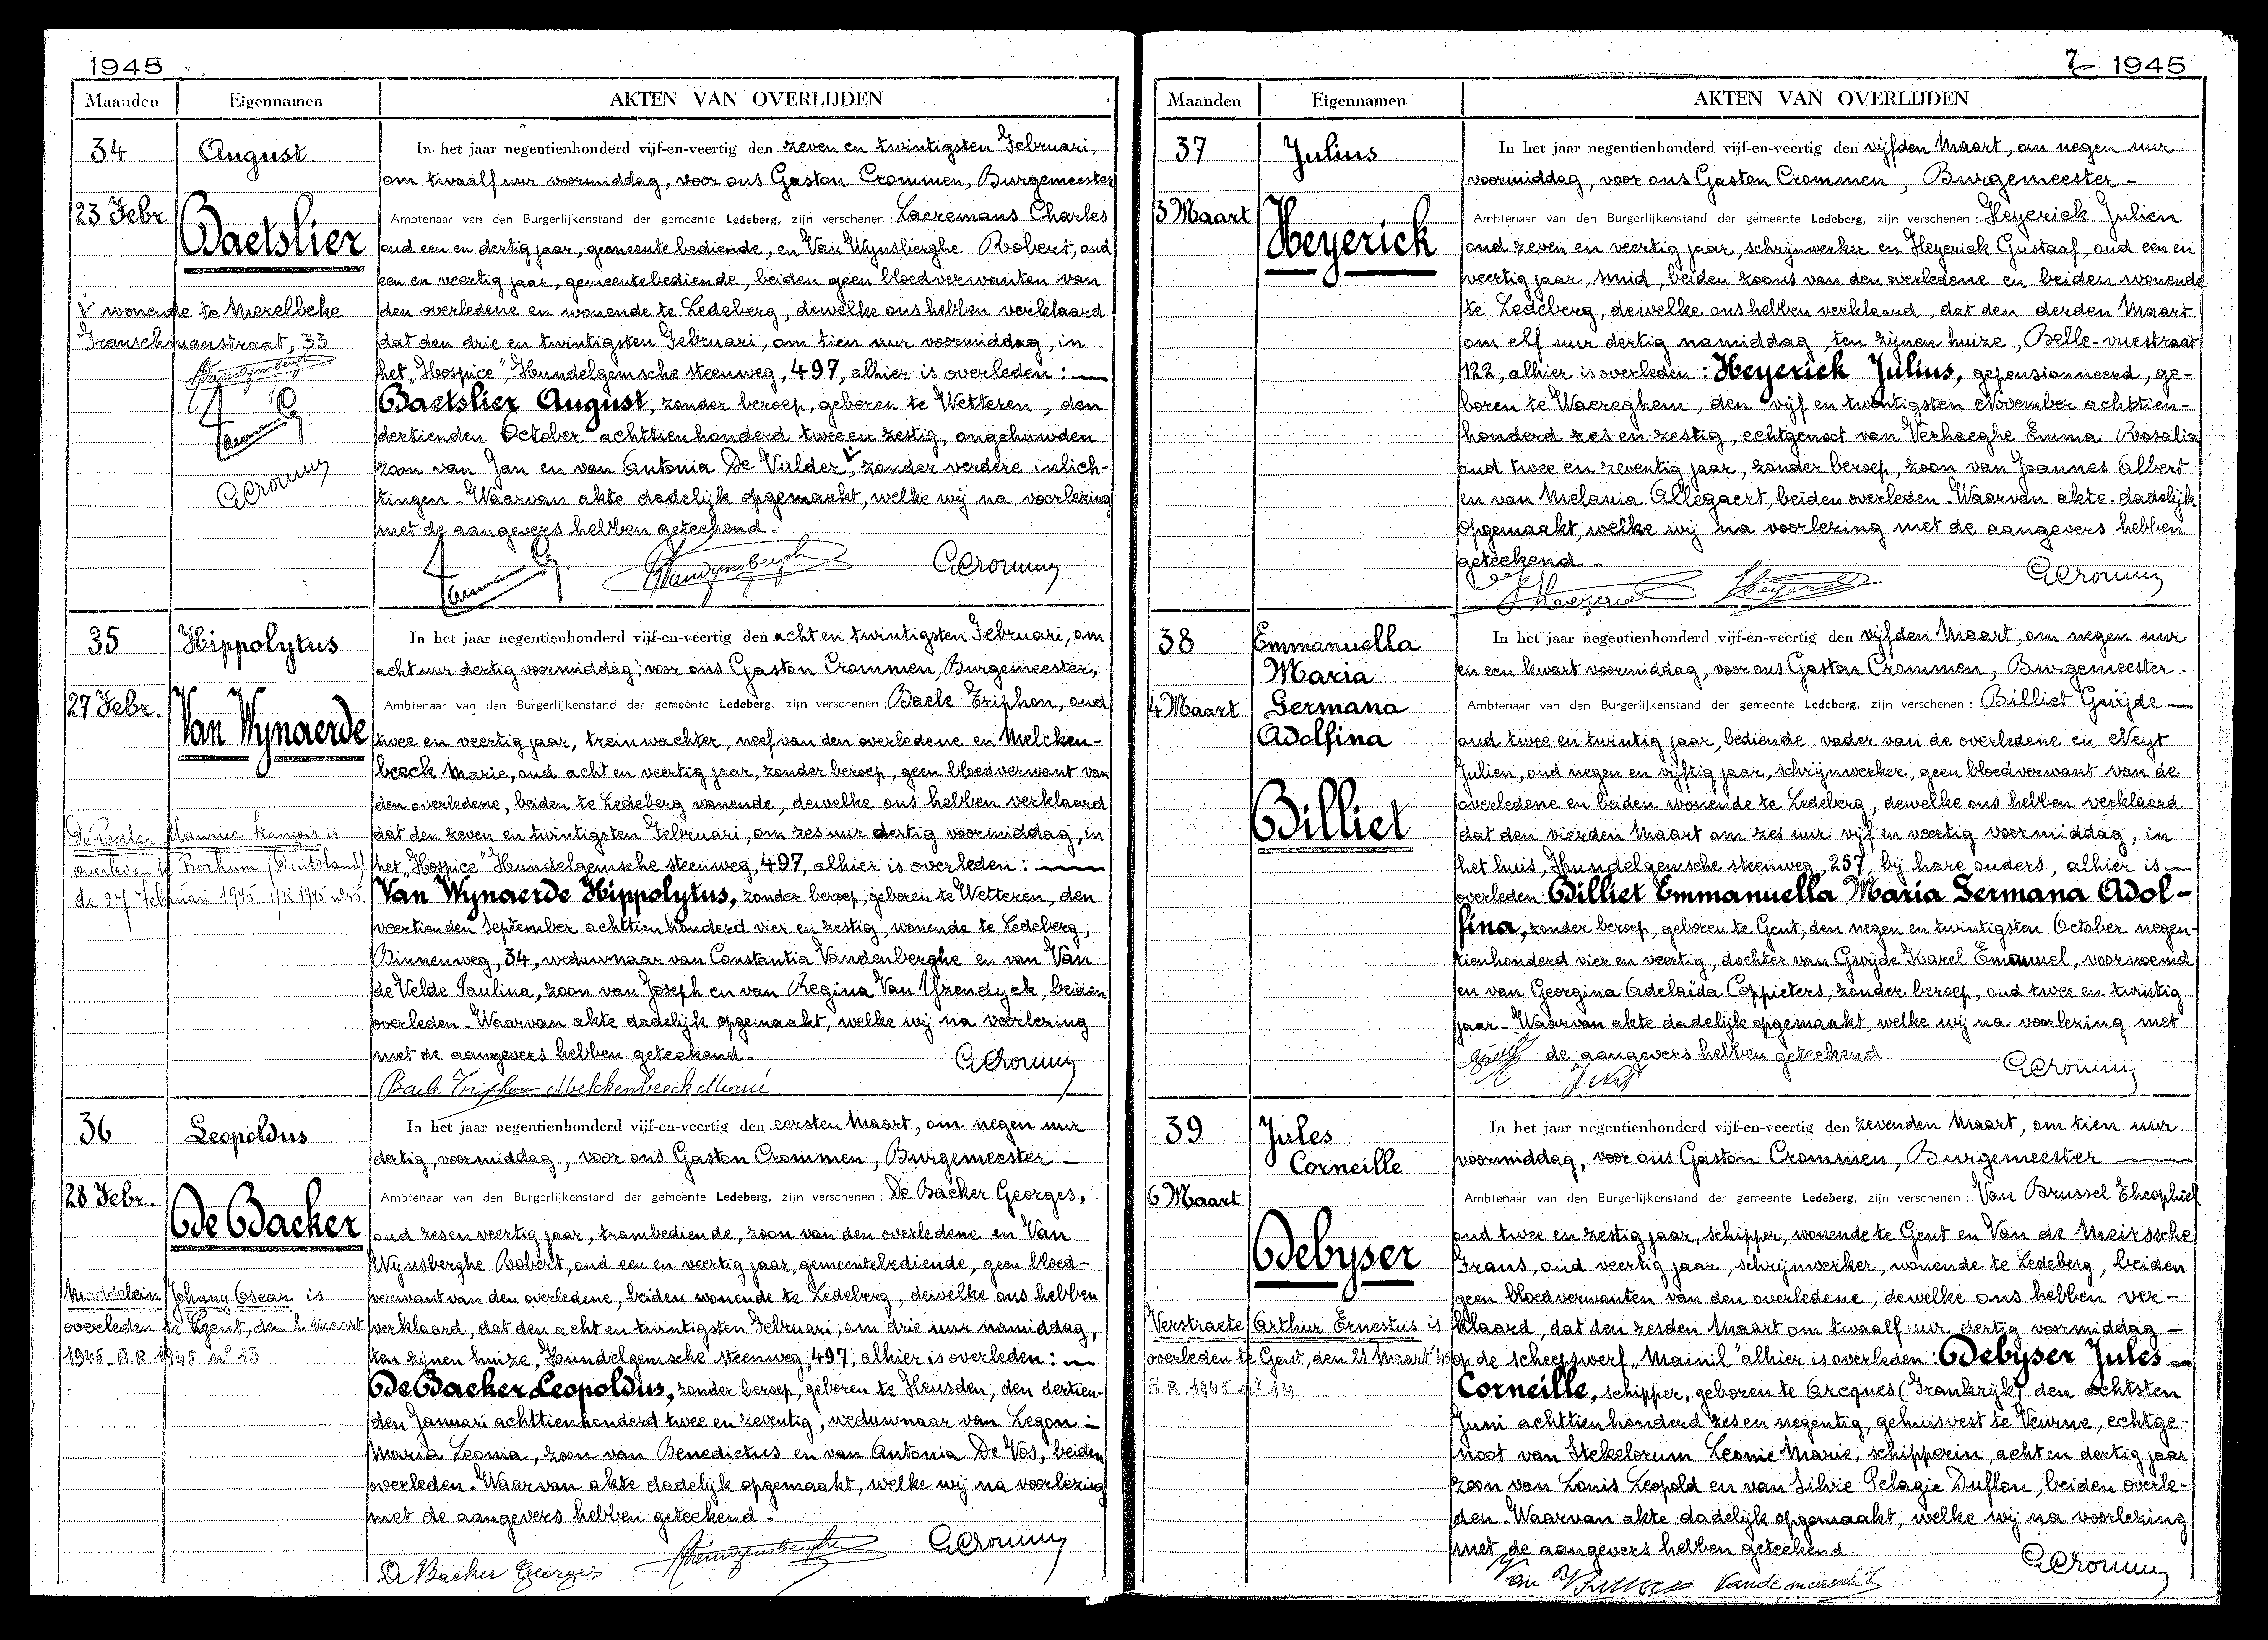 1945
Maanden Eigennamen AKTEN VAN OVERLIJDEN
34
August
23 Febr.
Baetslier
V wonende te Merelbeke
Franschmanstraat, 33
In het jaar negentienhonderd vijf-en-veertig den zeven en twintigsten Februari,
om twaalf uur voormiddag, voor ons Gaston Crommen, Burgemeester
Ambtenaar van den Burgerlijkenstand der gemeente Ledeberg, zijn verschenen: Laeremans Charles
oud een en dertig jaar, gemeente bediende, en Van Wynsberghe Robert, oud
een en veertig jaar, gemeentebediende, beiden geen bloedverwanten van
den overledene en wonende te Ledeberg, dewelke ons hebben verklaard
dat den drie en twintigsten Februari, om tien uur voormiddag, in
het „Hospice”, Hundelgemsche steenweg, 497, alhier is overleden: —
Baetslier August, zonder beroep, geboren te Wetteren, den
dertienden October achttienhonderd twee en zestig, ongehuwden
zoon van Jan en van Antonia De Vulder V, zonder verdere inlich-
tingen - Waarvan akte dadelijk opgemaakt, welke wij na voorlezing
met de aangevers hebben geteekend.
GCrommen
35
Hippolytus
27 Febr.
Van Wynaerde
Maurice François is
overleden te Borkum (Duitsland)
de 27 Februari 1945
In het jaar negentienhonderd vijf-en-veertig den acht en twintigsten Februari, om
acht uur dertig voormiddag, voor ons Gaston Crommen, Burgemeester,
Ambtenaar van den Burgerlijkenstand der gemeente Ledeberg, zijn verschenen: Baele Triphon, oud
twee en veertig jaar, treinwachter, neef van den overledene en Melcken-
beeck Marie, oud acht en veertig jaar, zonder beroep, geen bloedverwant van
den overledene, beiden te Ledeberg wonende, dewelke ons hebben verklaard
dat den zeven en twintigsten Februari, om zes uur dertig voormiddag, in
het „Hospice” Hundelgemsche steenweg, 497, alhier is overleden: —
Van Wynaerde Hippolytus, zonder beroep, geboren te Wetteren, den
veertienden September achttienhonderd vier en zestig, wonende te Ledeberg,
Binnenweg, 34, weduwnaar van Constantia Vandenberghe en van Van
de Velde Paulina, zoon van Joseph en van Regina Van Yzendyck, beiden
overleden - Waarvan akte dadelijk opgemaakt, welke wij na voorlezing
met de aangevers hebben geteekend.
GCrommen
Baele Triphon Melckenbeeck Marie
36
Leopoldus
28 Febr.
De Backer
Maddelein Johnny Oscar is
overleden te Gent, den 2 Maart
1945 - A.R. 1945 n° 13
In het jaar negentienhonderd vijf-en-veertig den eersten Maart, om negen uur
dertig, voormiddag, voor ons Gaston Crommen, Burgemeester —
Ambtenaar van den Burgerlijkenstand der gemeente Ledeberg, zijn verschenen: De Backer Georges,
oud zes en veertig jaar, trambediende, zoon van den overledene en Van
Wynsberghe Robert, oud een en veertig jaar, gemeentebediende, geen bloed-
verwant van den overledene, beiden wonende te Ledeberg, dewelke ons hebben
verklaard, dat den acht en twintigsten Februari, om drie uur namiddag,
ten zijnen huize, Hundelgemsche steenweg, 497, alhier is overleden: —
De Backer Leopoldus, zonder beroep, geboren te Heusden, den dertien-
den Januari achttienhonderd twee en zeventig, weduwnaar van Legon -
Maria Leonia, zoon van Benedictus en van Antonia De Vos, beiden
overleden - Waarvan akte dadelijk opgemaakt, welke wij na voorlezing
met de aangevers hebben geteekend.
GCrommen
De Backer Georges
7 1945
Maanden Eigennamen AKTEN VAN OVERLIJDEN
37
Julius
3 Maart
Heyerick
In het jaar negentienhonderd vijf-en-veertig den vijfden Maart, om negen uur
voormiddag, voor ons Gaston Crommen, Burgemeester -
Ambtenaar van den Burgerlijkenstand der gemeente Ledeberg, zijn verschenen: Heyerick Julien
oud zeven en veertig jaar, schrijnwerker en Heyerick Gustaaf, oud een en
veertig jaar, smid, beiden zoons van den overledene en beiden wonende
te Ledeberg, dewelke ons hebben verklaard, dat den derden Maart
om elf uur dertig namiddag, ten zijnen huize, Belle-vuestraat
122, alhier is overleden: Heyerick Julius, gepensionneerd, ge-
boren te Waereghem, den vijf en twintigsten November achttien-
honderd zes en zestig, echtgenoot van Verhaeghe Emma Rosalia
oud twee en zeventig jaar, zonder beroep, zoon van Joannes Albert
en van Melania Allegaert, beiden overleden. Waarvan akte dadelijk
opgemaakt, welke wij na voorlezing met de aangevers hebben
geteekend -
GCrommen
38
Emmanuella
Maria
Germana
Adolfina
4 Maart
Billiet
In het jaar negentienhonderd vijf-en-veertig den vijfden Maart, om negen uur
en een kwart voormiddag, voor ons Gaston Crommen, Burgemeester -
Ambtenaar van den Burgerlijkenstand der gemeente Ledeberg, zijn verschenen: Billiet Gwijde —
oud twee en twintig jaar, bediende, vader van de overledene en Neyt
Julien, oud negen en vijftig jaar, schrijnwerker, geen bloedverwant van de
overledene en beiden wonende te Ledeberg, dewelke ons hebben verklaard
dat den vierden Maart om zes uur vijf en veertig voormiddag, in
het huis, Hundelgemsche steenweg, 257, bij hare ouders, alhier is —
overleden: Billiet Emmanuella Maria Germana Adol-
fina, zonder beroep, geboren te Gent, den negen en twintigsten October negen-
tienhonderd vier en veertig, dochter van Gwijde Karel Emanuel, voornoemd
en van Georgina Adelaïda Coppieters, zonder beroep, oud twee en twintig
jaar - Waarvan akte dadelijk opgemaakt, welke wij na voorlezing met
de aangevers hebben geteekend -
GCrommen
39
Jules
Corneille
6 Maart
Debyser
Verstraete Arthur Ernestus is
overleden te Gent, den 21 Maart 45
A.R. 1945 n° 14
In het jaar negentienhonderd vijf-en-veertig den zevenden Maart, om tien uur
voormiddag, voor ons Gaston Crommen, Burgemeester —
Ambtenaar van den Burgerlijkenstand der gemeente Ledeberg, zijn verschenen: Van Brussel Theophiel
oud twee en zestig jaar, schipper, wonende te Gent en Van de Meirssche
Frans, oud veertig jaar, schrijnwerker, wonende te Ledeberg, beiden
geen bloedverwanten van den overledene, dewelke ons hebben ver-
klaard, dat den zesden Maart om twaalf uur dertig voormiddag -
op de scheepswerf „Mainil” alhier is overleden: Debyser Jules —
Corneille, schipper, geboren te Arcques (Frankrijk) den achtsten
Juni achttienhonderd zes en negentig, gehuisvest te Veurne, echtge-
noot van Stekelorum Leonie Marie, schipperin, acht en dertig jaar
zoon van Louis Leopold en van Silvie Pelagie Duflou, beiden overle-
den - Waarvan akte dadelijk opgemaakt, welke wij na voorlezing
met de aangevers hebben geteekend.
GCrommen